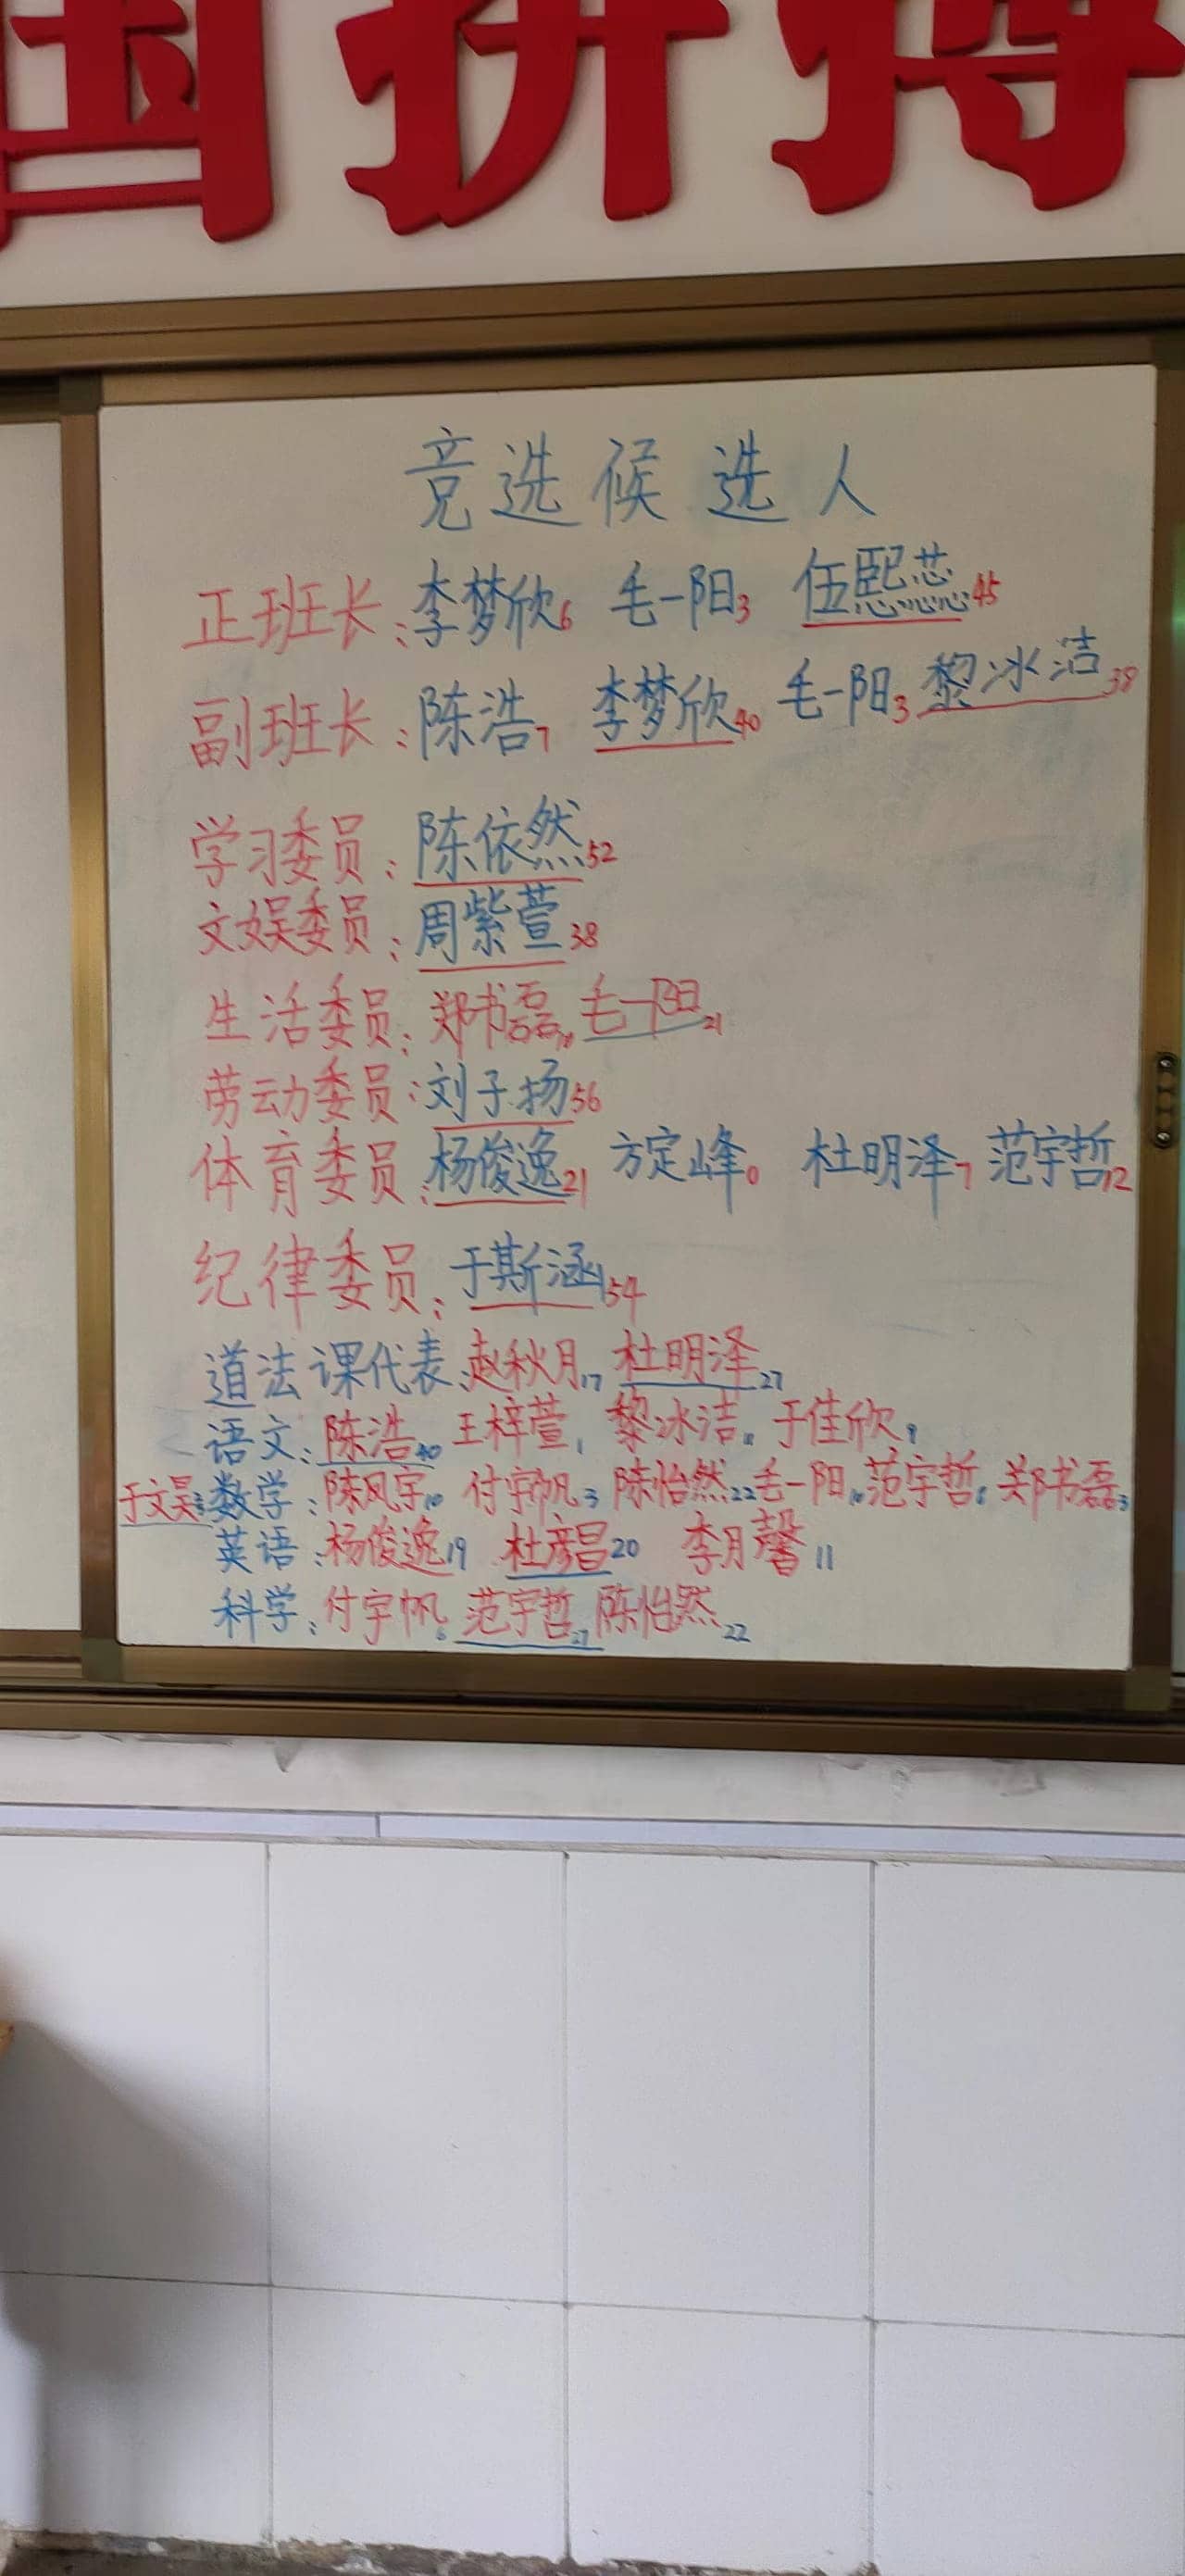 国拼搏
竞选候选人
正班长:李梦欣6 毛一阳3 伍熙芯45
副班长:陈浩7 李梦欣40 毛一阳3 黎冰洁38
学习委员:陈依然52
文娱委员:周紫萱38
生活委员:郑书磊 毛一阳21
劳动委员:刘子扬56
体育委员:杨俊逸21 方定峰0 杜明泽7 范宇哲12
纪律委员:于斯涵54
道法课代表:赵秋月17 杜明泽27
语文:陈浩40 王梓萱1 黎冰洁 于佳欣9
于文昊 数学:陈凤宇10 付宇帆3 陈怡然22 毛一阳 范宇哲 郑书磊3
英语:杨俊逸19 杜彦昌20 李月馨11
科学:付宇帆6 范宇哲27 陈怡然22